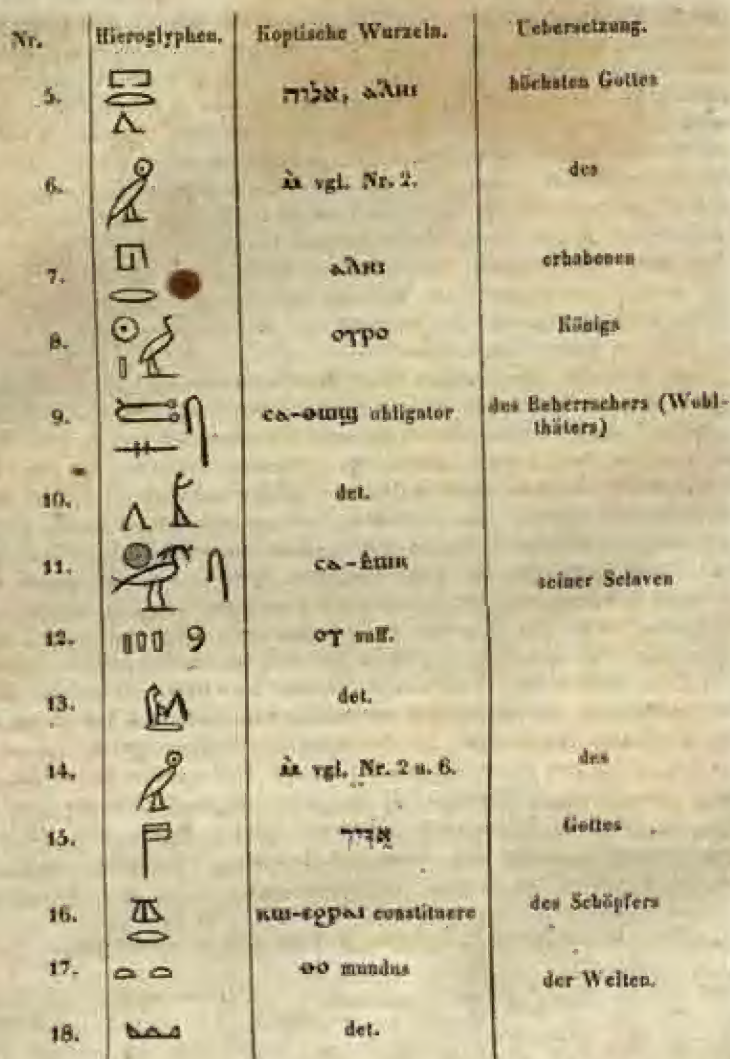 Nr. Hieroglyphen. Koptische Wurzeln. Uebersetzung.
5. אלוה, ⲁⲗⲏⲓ höchsten Gottes
6. ⲙ̀ vgl. Nr. 2. des
7. ⲁⲗⲏⲓ erhabenen
8. ⲟⲩⲣⲟ Königs
9. obligator des Beherrschers (Wohl-
thäters)
10. det.
11. ⲥⲁ-ⲃⲱⲕ seiner Sclaven
12. ⲟⲩ suff.
13. det.
14. ⲙ̀ vgl. Nr. 2 u. 6. des
15. אדיר Gottes
16. ⲕⲱ-ⲉϩⲣⲁⲓ constituere des Schöpfers
17. ⲑⲟ mundus der Welten.
18. det.